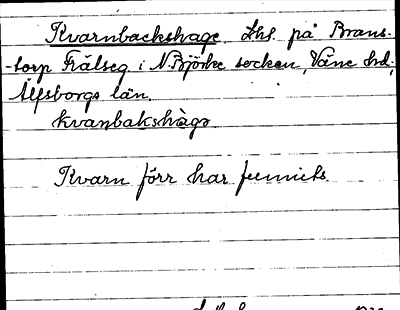 Kvarnbackshage. Lhs. på Brans-
-torp Frälseg. i N. Björke socken, Väne hd,
Älfsborgs län.
kvanbakshàga
Kvarn förr har funnits.